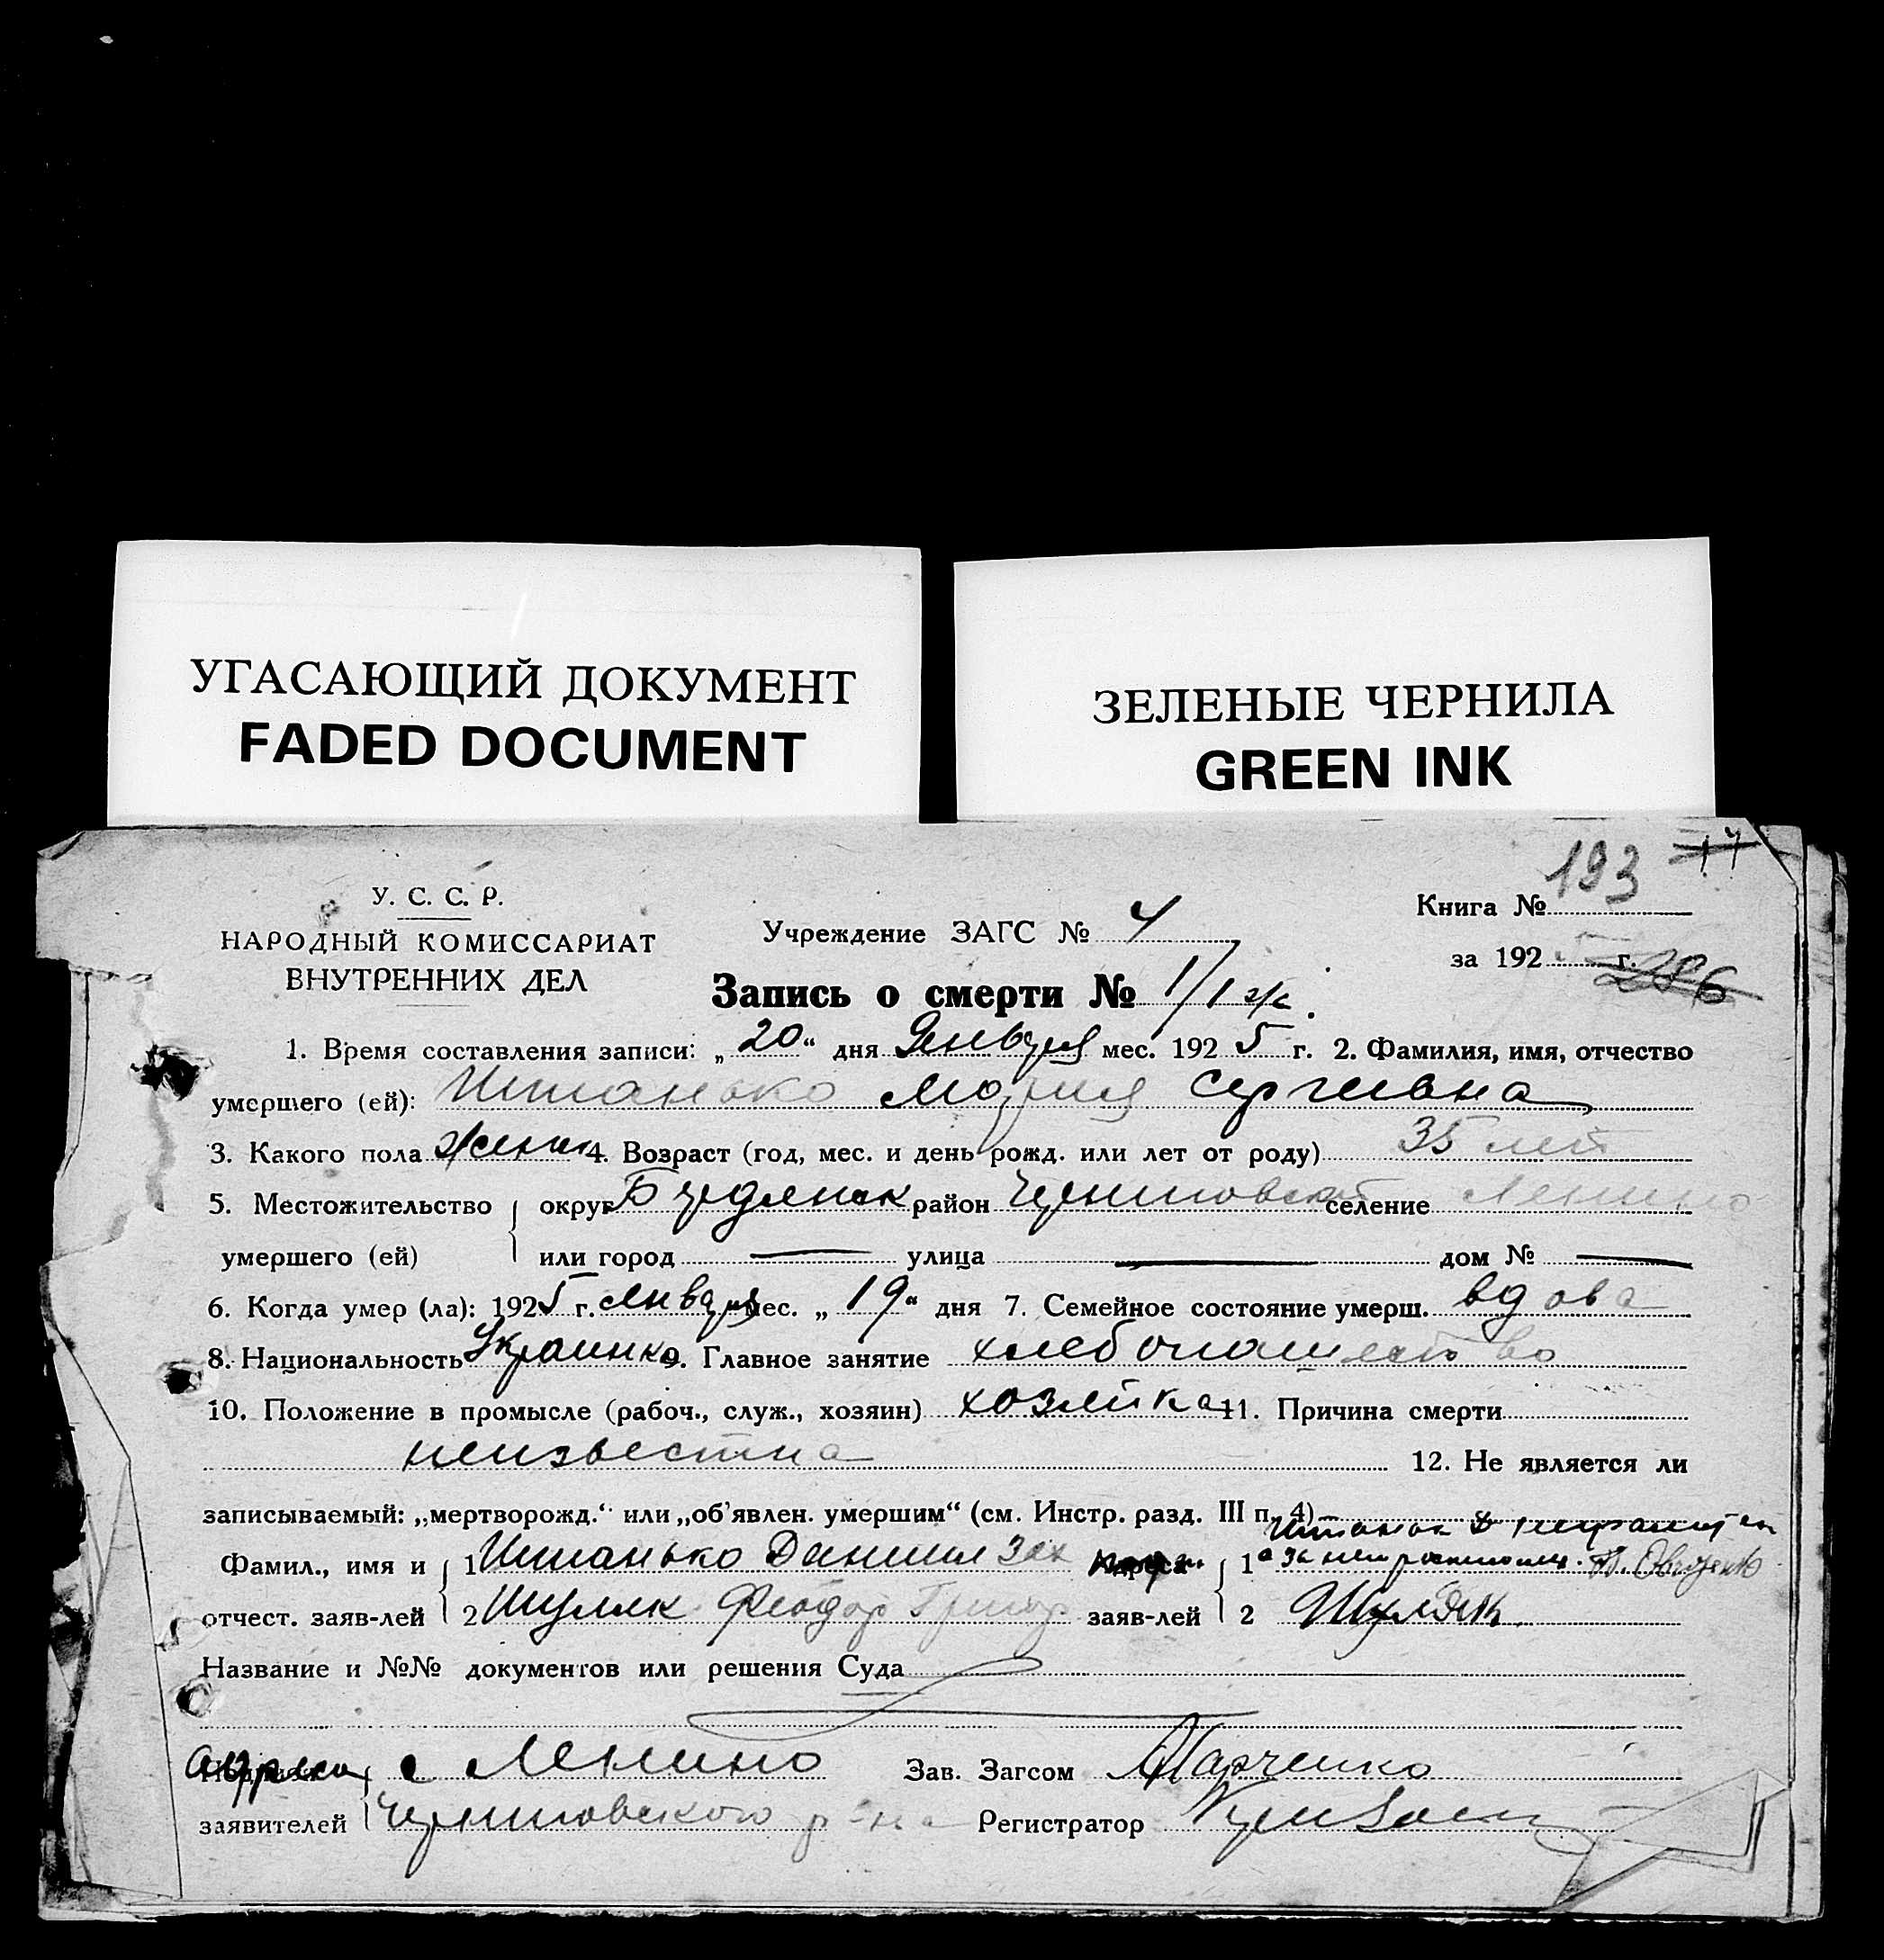 УГАСАЮЩИЙ ДОКУМЕНТ
FADED DOCUMENT
ЗЕЛЕНЫЕ ЧЕРНИЛА
GREEN INK
У. С. С. Р.
НАРОДНЫЙ КОМИССАРИАТ
ВНУТРЕННИХ ДЕЛ
Учреждение ЗАГС № 4
Книга № 193 17
за 192 г. 286
Запись о смерти № 1/1
1. Время составления записи: „20“ дня Января мес. 1925 г. 2. Фамилия, имя, отчество
умершего (ей): Иштанько Мария Сергиевна
3. Какого пола женск 4. Возраст (год, мес. и день рожд. или лет от роду) 35 лет
5. Местожительство округ Бердянск район Черниговской селение Ленино
умершего (ей) или город — улица — дом № —
6. Когда умер (ла): 1925 г. Января мес. „19“ дня 7. Семейное состояние умерш. вдова
8. Национальность Украинка 9. Главное занятие хлебопашество
10. Положение в промысле (рабоч., служ., хозяин) хозяйка 11. Причина смерти
неизвестна 12. Не является ли
записываемый: „мертворожд.“ или „об'явлен. умершим“ (см. Инстр. разд. III п. 4)
Фамил., имя и 1 Иштанько Даниил Зах 1 а за неи
отчест. заяв-лей 2 Шуляк Феодор Григор заяв-лей 2 Шуляк
Название и №№ документов или решения Суда
Адреса с Ленино Зав. Загсом Марченко
заявителей Черниговского р-на Регистратор